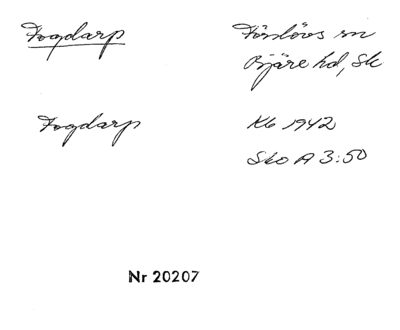 Fogdarp Förslövs sn
Bjäre hd, Sk
Fogdarp Kb 1942
Sko A 3:50
Nr 20207